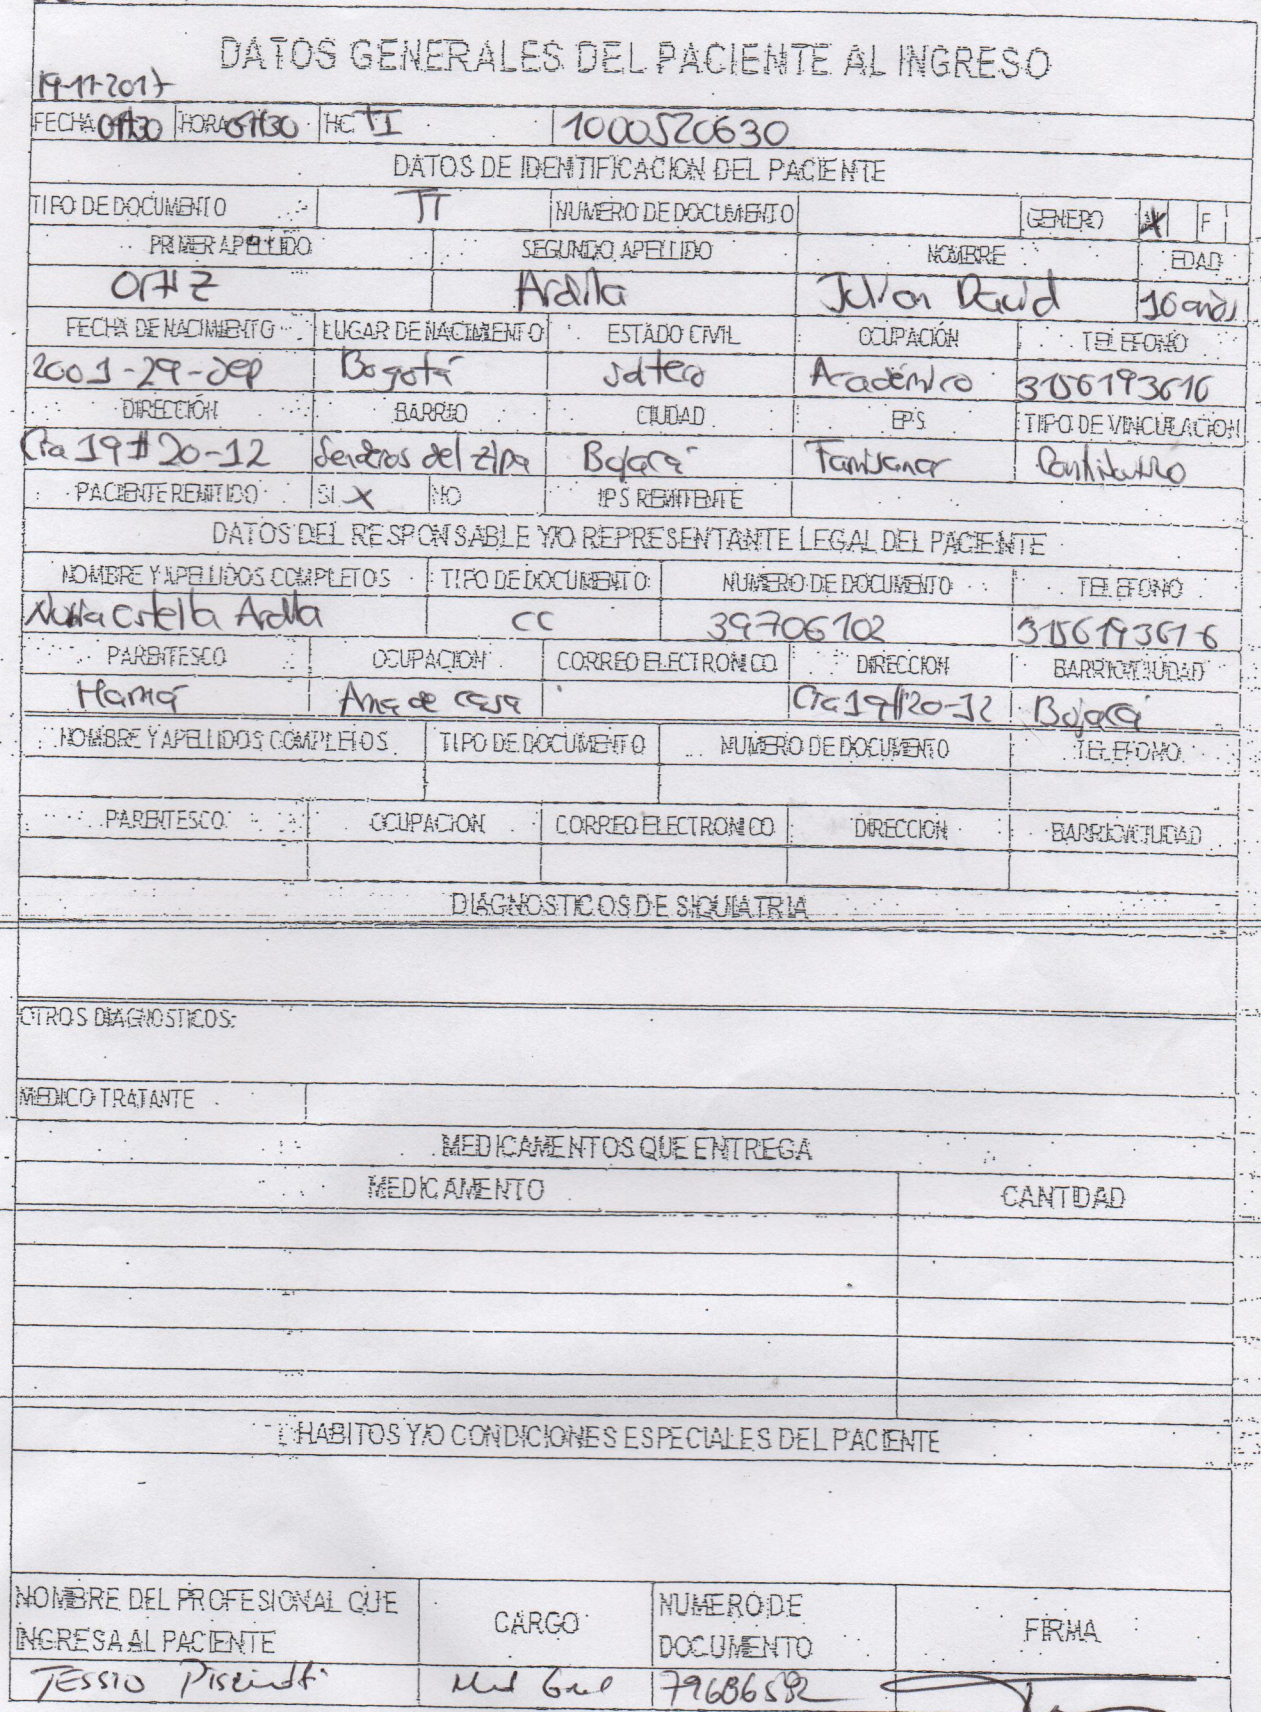 DATOS GENERALES DEL PACIENTE AL INGRESO
19-11-2017
FECHA 07H30 HORA 07H30 HC TI 1000520630
DATOS DE IDENTIFICACION DEL PACIENTE
TIPO DE DOCUMENTO TI NUMERO DE DOCUMENTO GENERO M X F
PRIMER APELLIDO SEGUNDO APELLIDO NOMBRE EDAD
Ortiz Ardila Julian David 16 años
FECHA DE NACIMIENTO LUGAR DE NACIMIENTO ESTADO CIVIL OCUPACIÓN TELEFONO
2001-29-sep Bogotá soltero Académico 3156193616
DIRECCIÓN BARRIO CIUDAD EPS TIPO DE VINCULACION
Cra 19 # 20-12 Senderos del zipa Bojacá Famisanar Contributivo
PACIENTE REMITIDO SI X NO IPS REMITENTE
DATOS DEL RESPONSABLE Y/O REPRESENTANTE LEGAL DEL PACIENTE
NOMBRE Y APELLIDOS COMPLETOS TIPO DE DOCUMENTO NUMERO DE DOCUMENTO TELEFONO
Estella Ardila CC 39706102 3156193616
PARENTESCO OCUPACION CORREO ELECTRONICO DIRECCION BARRIO/CIUDAD
Mamá Ama de casa Cra 19 #20-12 Bojacá
NOMBRE Y APELLIDOS COMPLETOS TIPO DE DOCUMENTO NUMERO DE DOCUMENTO TELEFONO
PARENTESCO OCUPACION CORREO ELECTRONICO DIRECCION BARRIO/CIUDAD
DIAGNOSTICOS DE SIQUIATRIA
OTROS DIAGNOSTICOS:
MEDICO TRATANTE
MEDICAMENTOS QUE ENTREGA
MEDICAMENTO CANTIDAD
HABITOS Y/O CONDICIONES ESPECIALES DEL PACIENTE
NOMBRE DEL PROFESIONAL QUE INGRESA AL PACIENTE CARGO NUMERO DE DOCUMENTO FIRMA
Tessio Med Gral 79686592